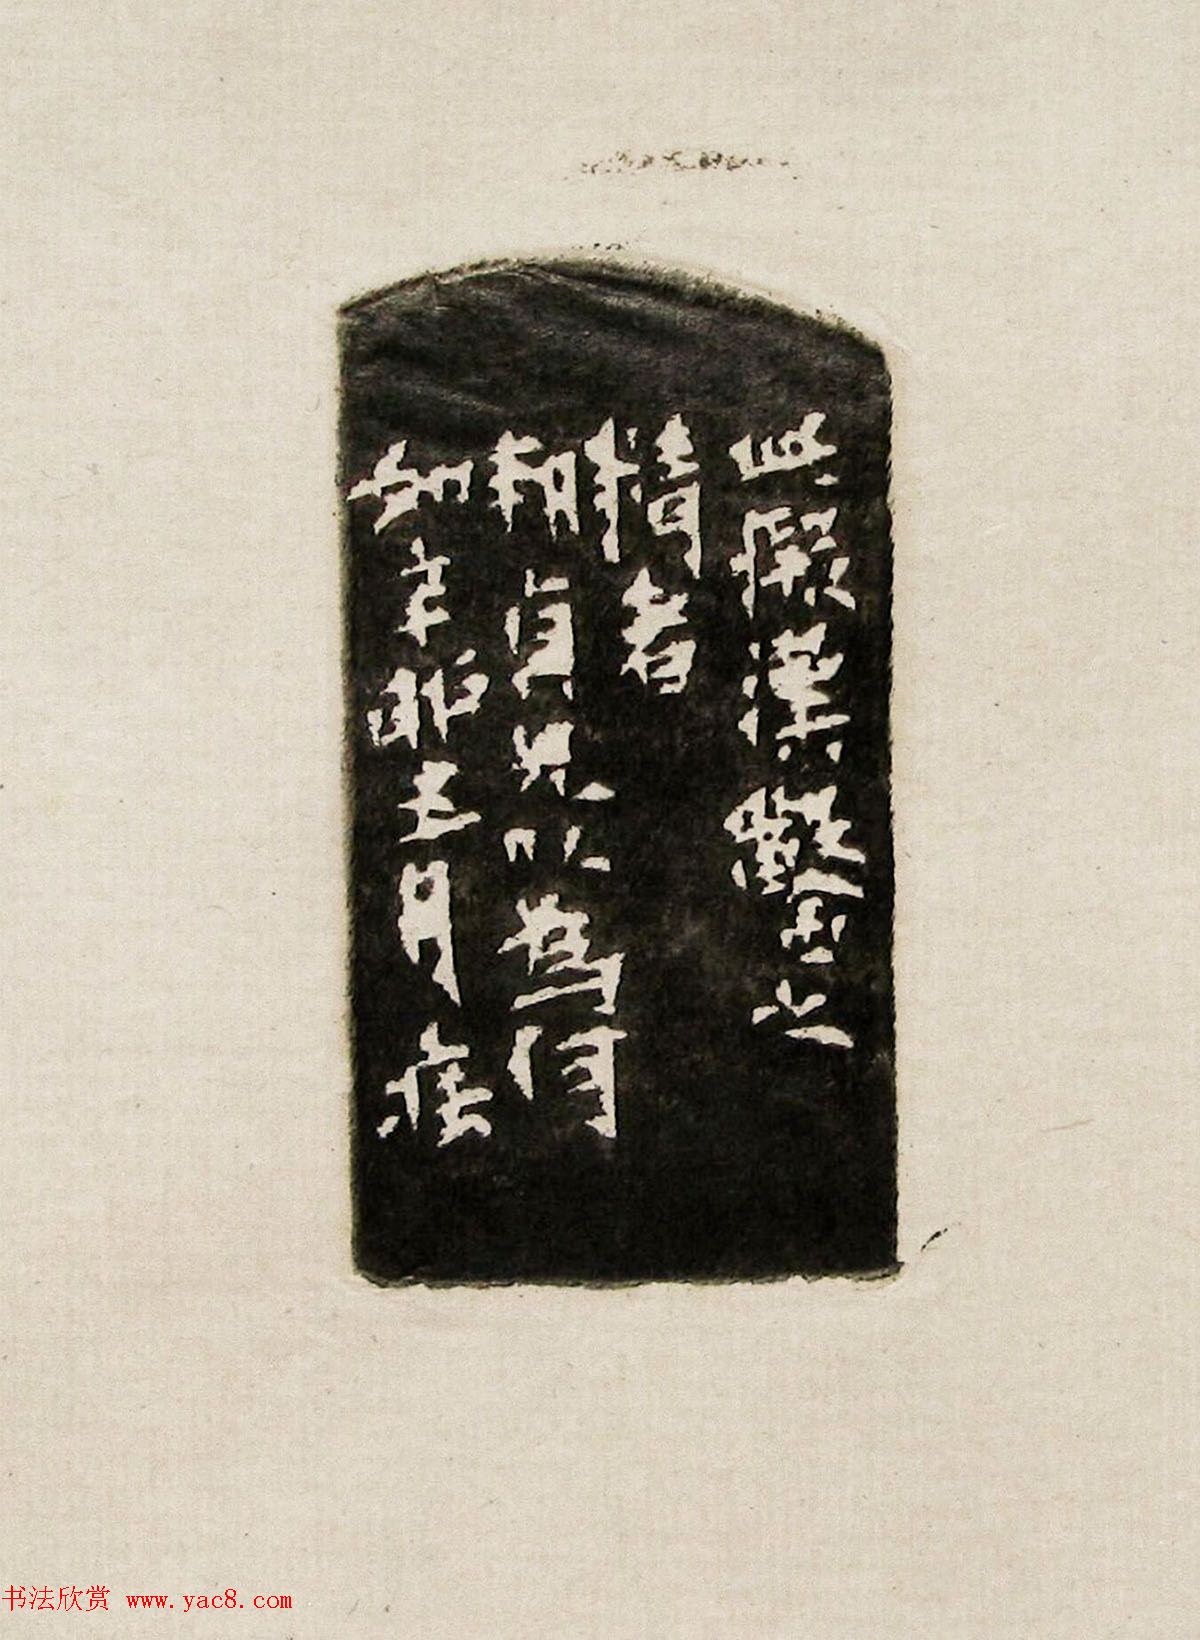 此假漢鑿印之
精者
翔貞兄以為何
如辛卯五月
书法欣赏 www.yac8.com